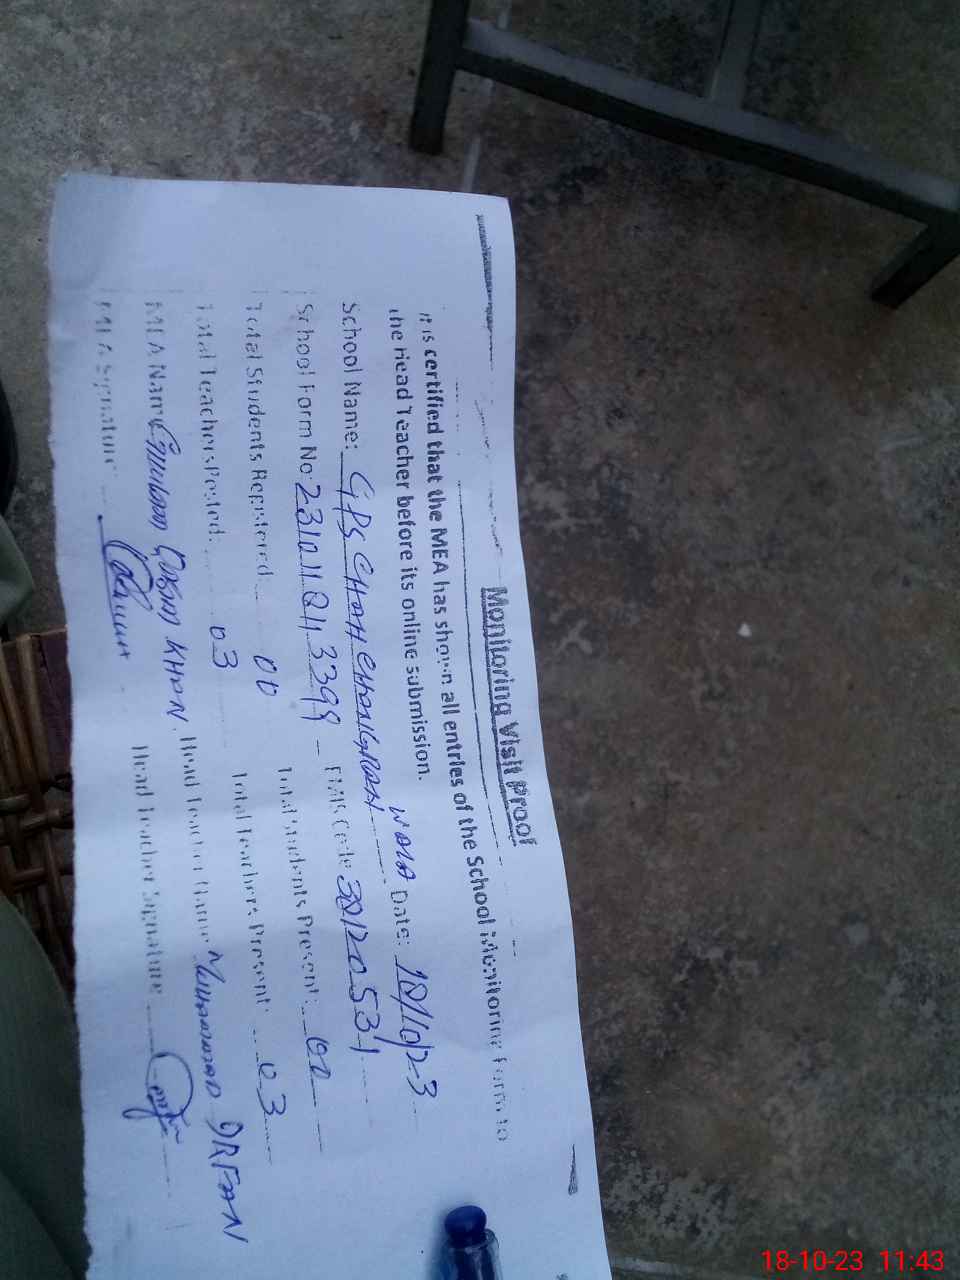 Monitoring Visit Proof
It is certified that the MEA has shown all entries of the School Monitoring Form to
the Head Teacher before its online submission.
School Name: GPS CHAH CHANGRAN WALA Date: 18/10/23
School Form No: 231011Q113399 EMIS Code: 38120531
Total Students Registered: 00 Total Students Present: 00
Total Teachers Posted: 03 Total Teachers Present: 03
MEA Name: KHAN. Head Teacher Name: MUHAMMAD IRFAN
MEA Signature: Head Teacher Signature
18-10-23 11:43